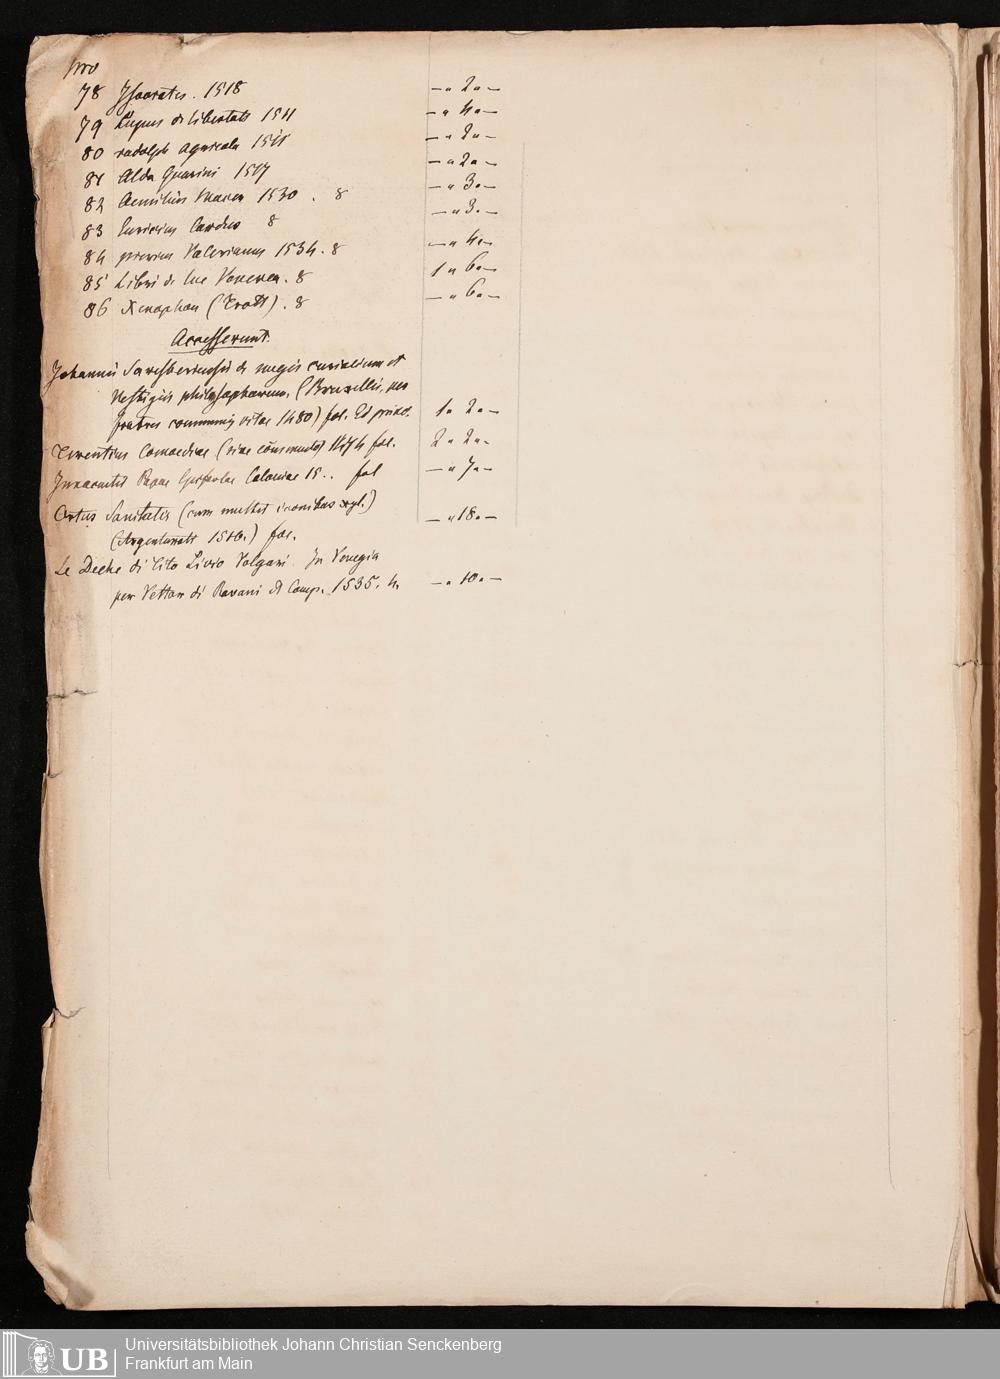 78 Isocrates. 1518 — " 2 " —
79 Lupus de libertate 1511 — " 4 " —
80 rudolph Agricola 1511 — " 2 " —
81 Alda Guarini 1517 — " 2 " —
82 Aemilius Macer 1530. 8 — " 3 " —
83 Euricius Cordus 8 — " 3 " —
84 pierius Valerianus 1534. 8 — " 4 " —
85 Libri de lue Venerea. 8 1 " 6 " —
86 Xenophon (Trott). 8 — " 6 " —
Accesserunt.
Johannis Saresberiensis de nugis curialium et
Vestigiis philosophorum. (Bruxellis, per
fratres communis vitae 1480) fol. Ed princ. 1 " 2 " —
Terentius Comoediae (sine commento) 1474 fol. 2 " 2 " —
Innocentii Papae Coloniae 15.. fol — " 7 " —
Ortus Sanitatis (cum multis iconibus xyl.) — " 18 " —
(Argentorati 1516.) fol.
Le Deche di Tito Livio Volgari. In Venegia
per Vettor di Ravani & Comp. 1535. 4. — " 10 " —
UB
Universitätsbibliothek Johann Christian Senckenberg
Frankfurt am Main